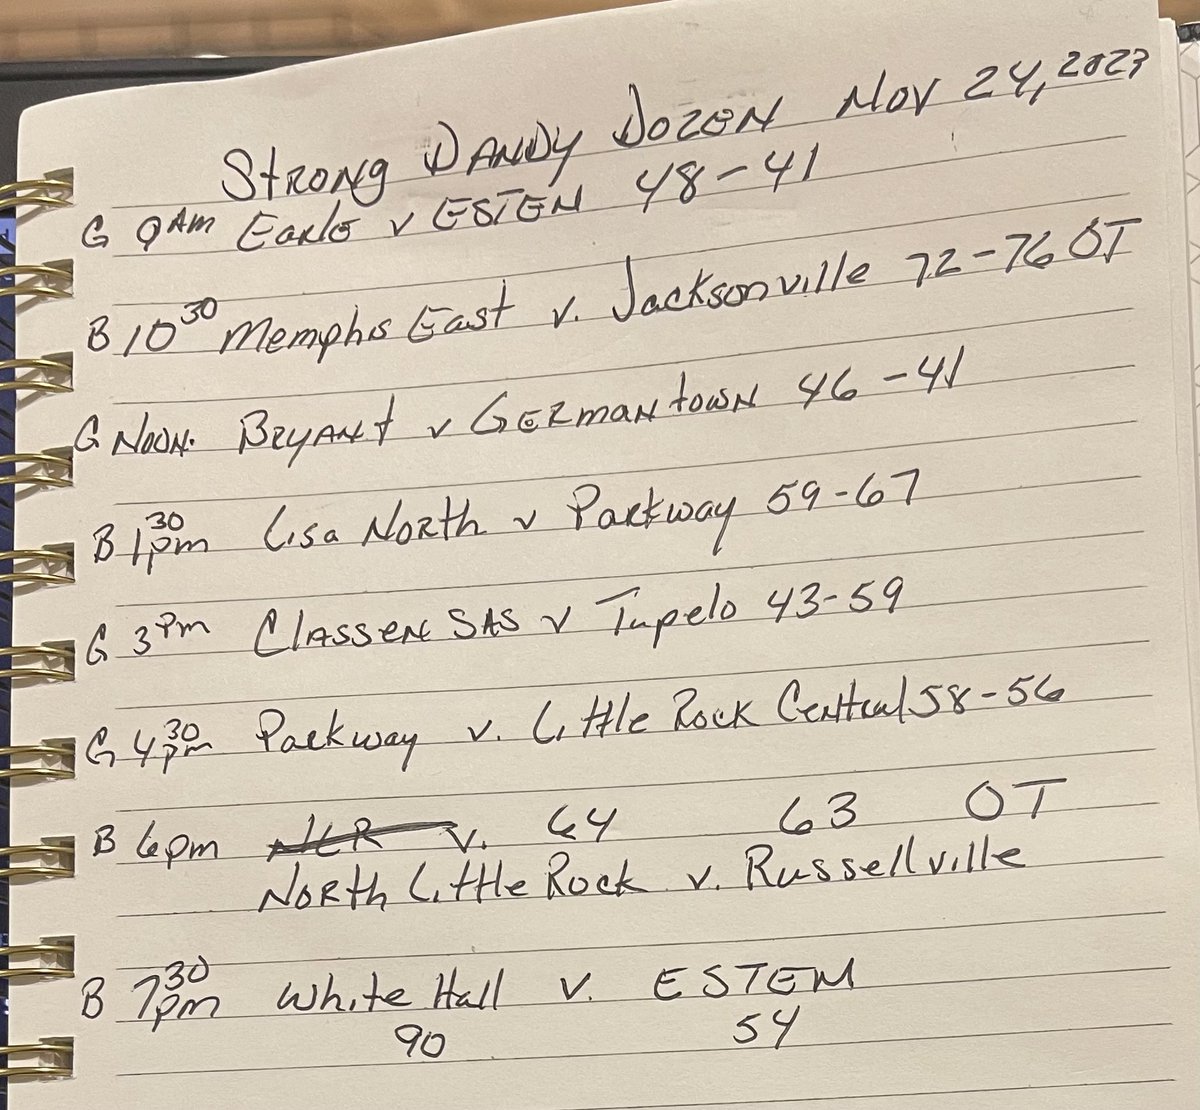 Strong DANDY DOZEN Nov 24, 2023
G 9AM Earle v ESTEM 48-41
B 10 30 Memphis East v. Jacksonville 72-76 OT
G NOON. BRYANT v GERMANTOWN 46-41
B 1 30 pm Lisa North v Parkway 59-67
G 3 Pm Classen SAS v Tupelo 43-59
G 4 30 pm Parkway v. Little Rock Central 58-56
B 6pm NLR v. 64 63 OT
North Little Rock v. Russellville
B 7 30 pm White Hall v. ESTEM
90 54